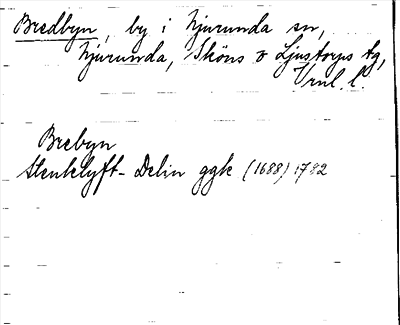 Bredbyn, by i Njurunda sn,
Njurunda, Sköns o Ljustorps tg,
Vrnl. l.
Brebyn
Stenklyft-Delin ggk (1688) 1782